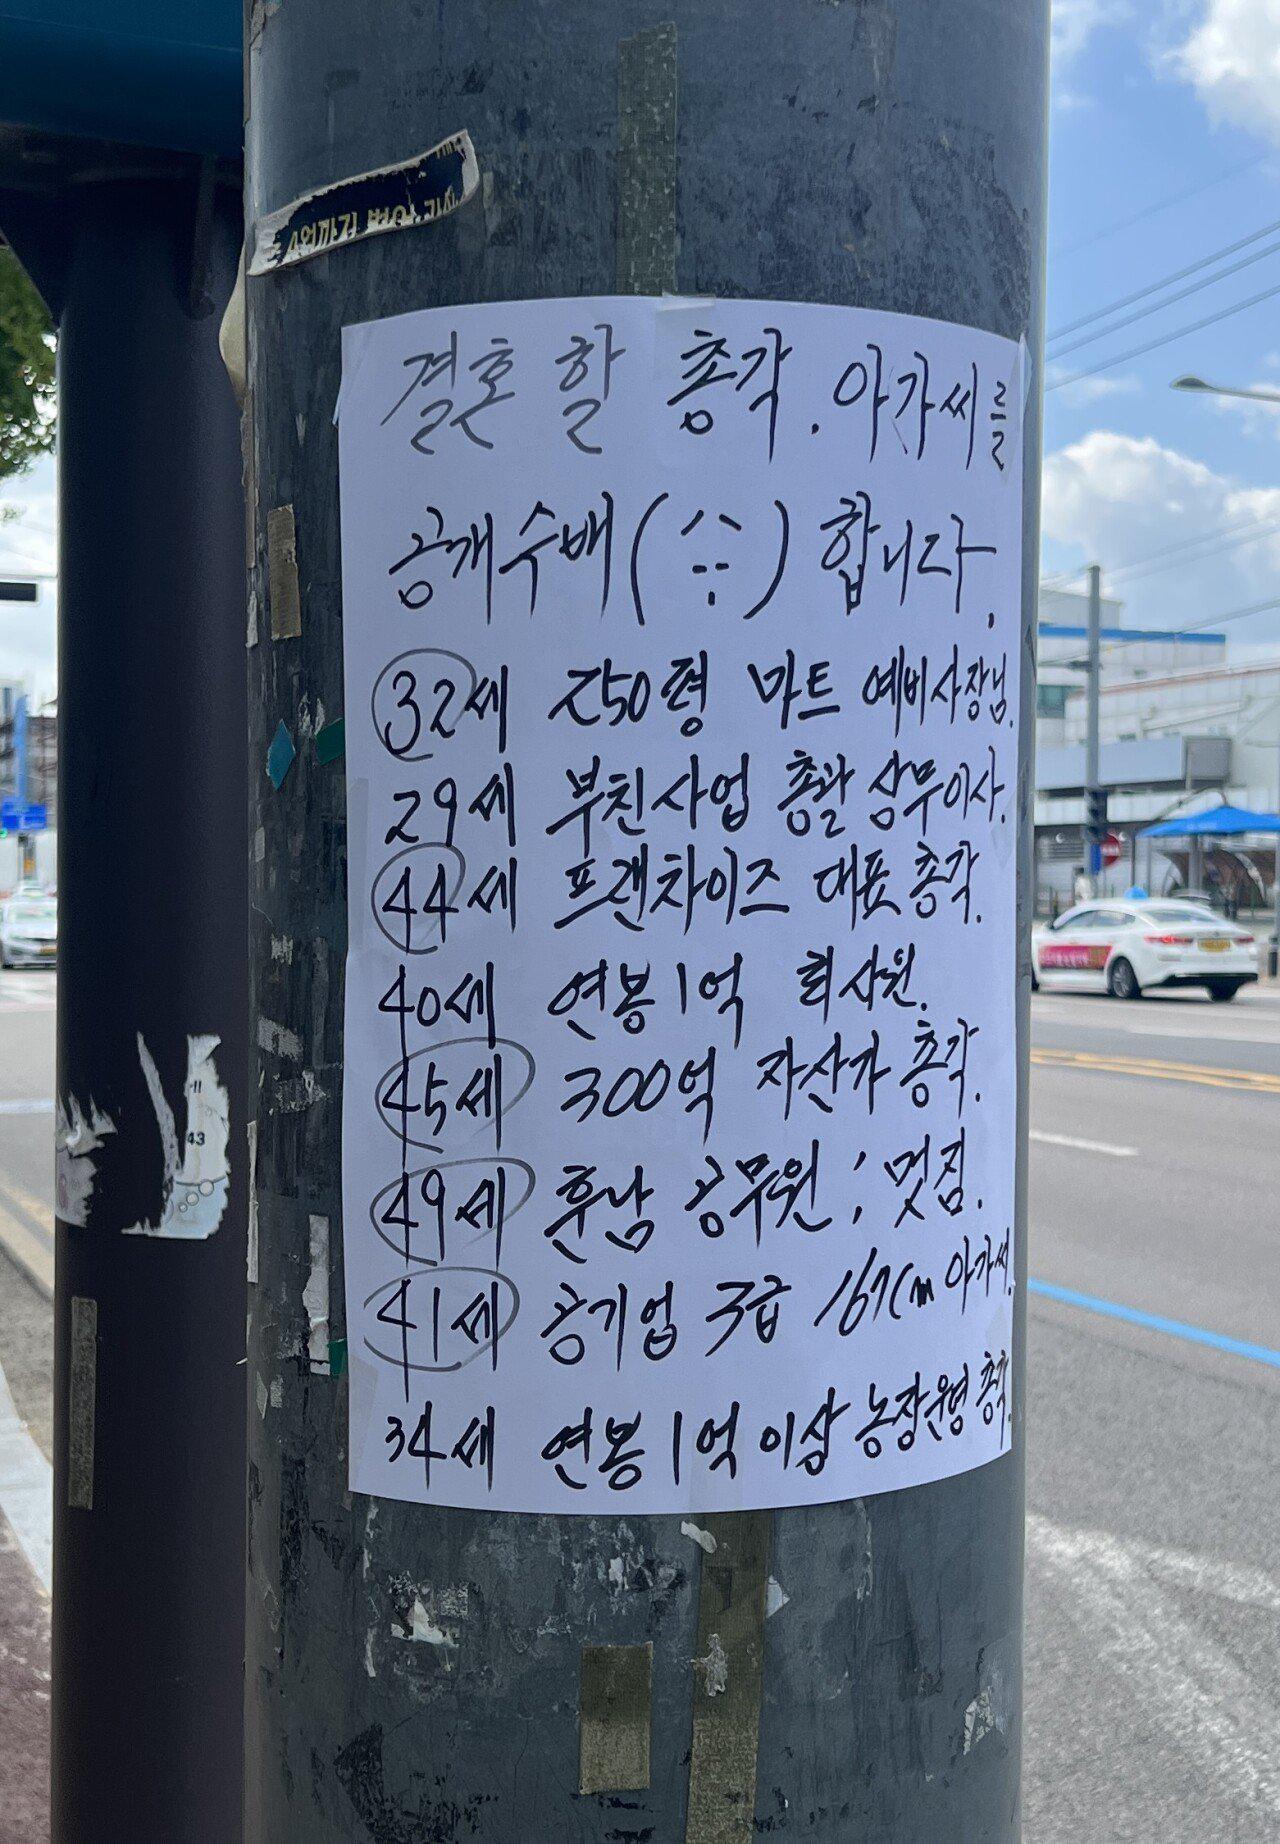 결혼할 총각. 아가씨를
공개수배(^^) 합니다.
32세 250평 마트 예비사장님.
29세 부친사업 총괄 상무이사.
44세 프랜차이즈 대표 총각.
40세 연봉 1억 회사원.
45세 300억 자산가 총각.
49세 훈남 공무원; 멋짐.
41세 공기업 3급 167cm 아가씨.
34세 연봉 1억 이상 농장운영 총각.
43